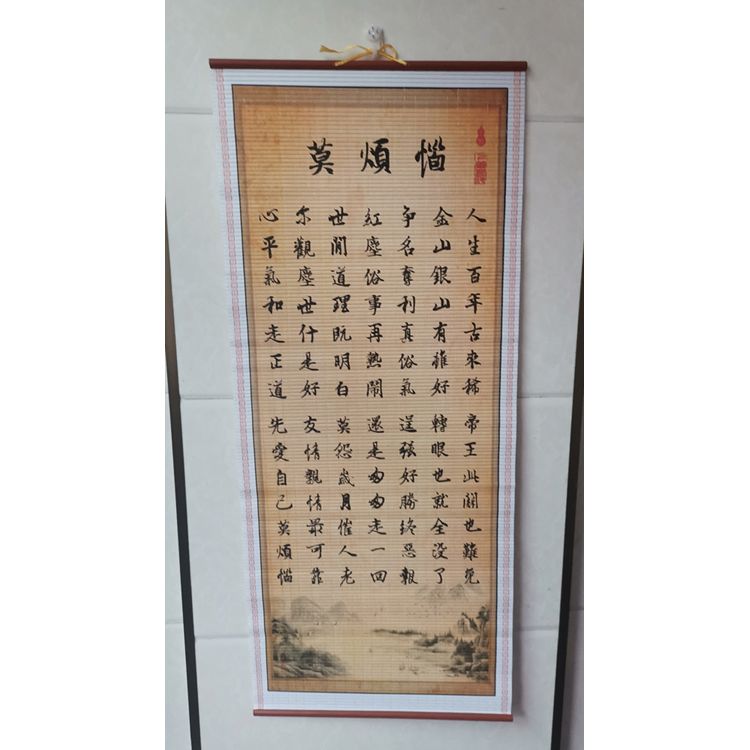 莫煩惱
人生百年古來稀 帝王此關也難免
金山銀山有誰好 轉眼也就全没了
争名奪利真俗氣 逞强好勝終惡報
紅塵俗事再熱鬧 還是匆匆走一回
世間道理既明白 莫怨歲月催人老
尔觀塵世什是好 友情親情最可靠
心平氣和走正道 先愛自己莫煩惱